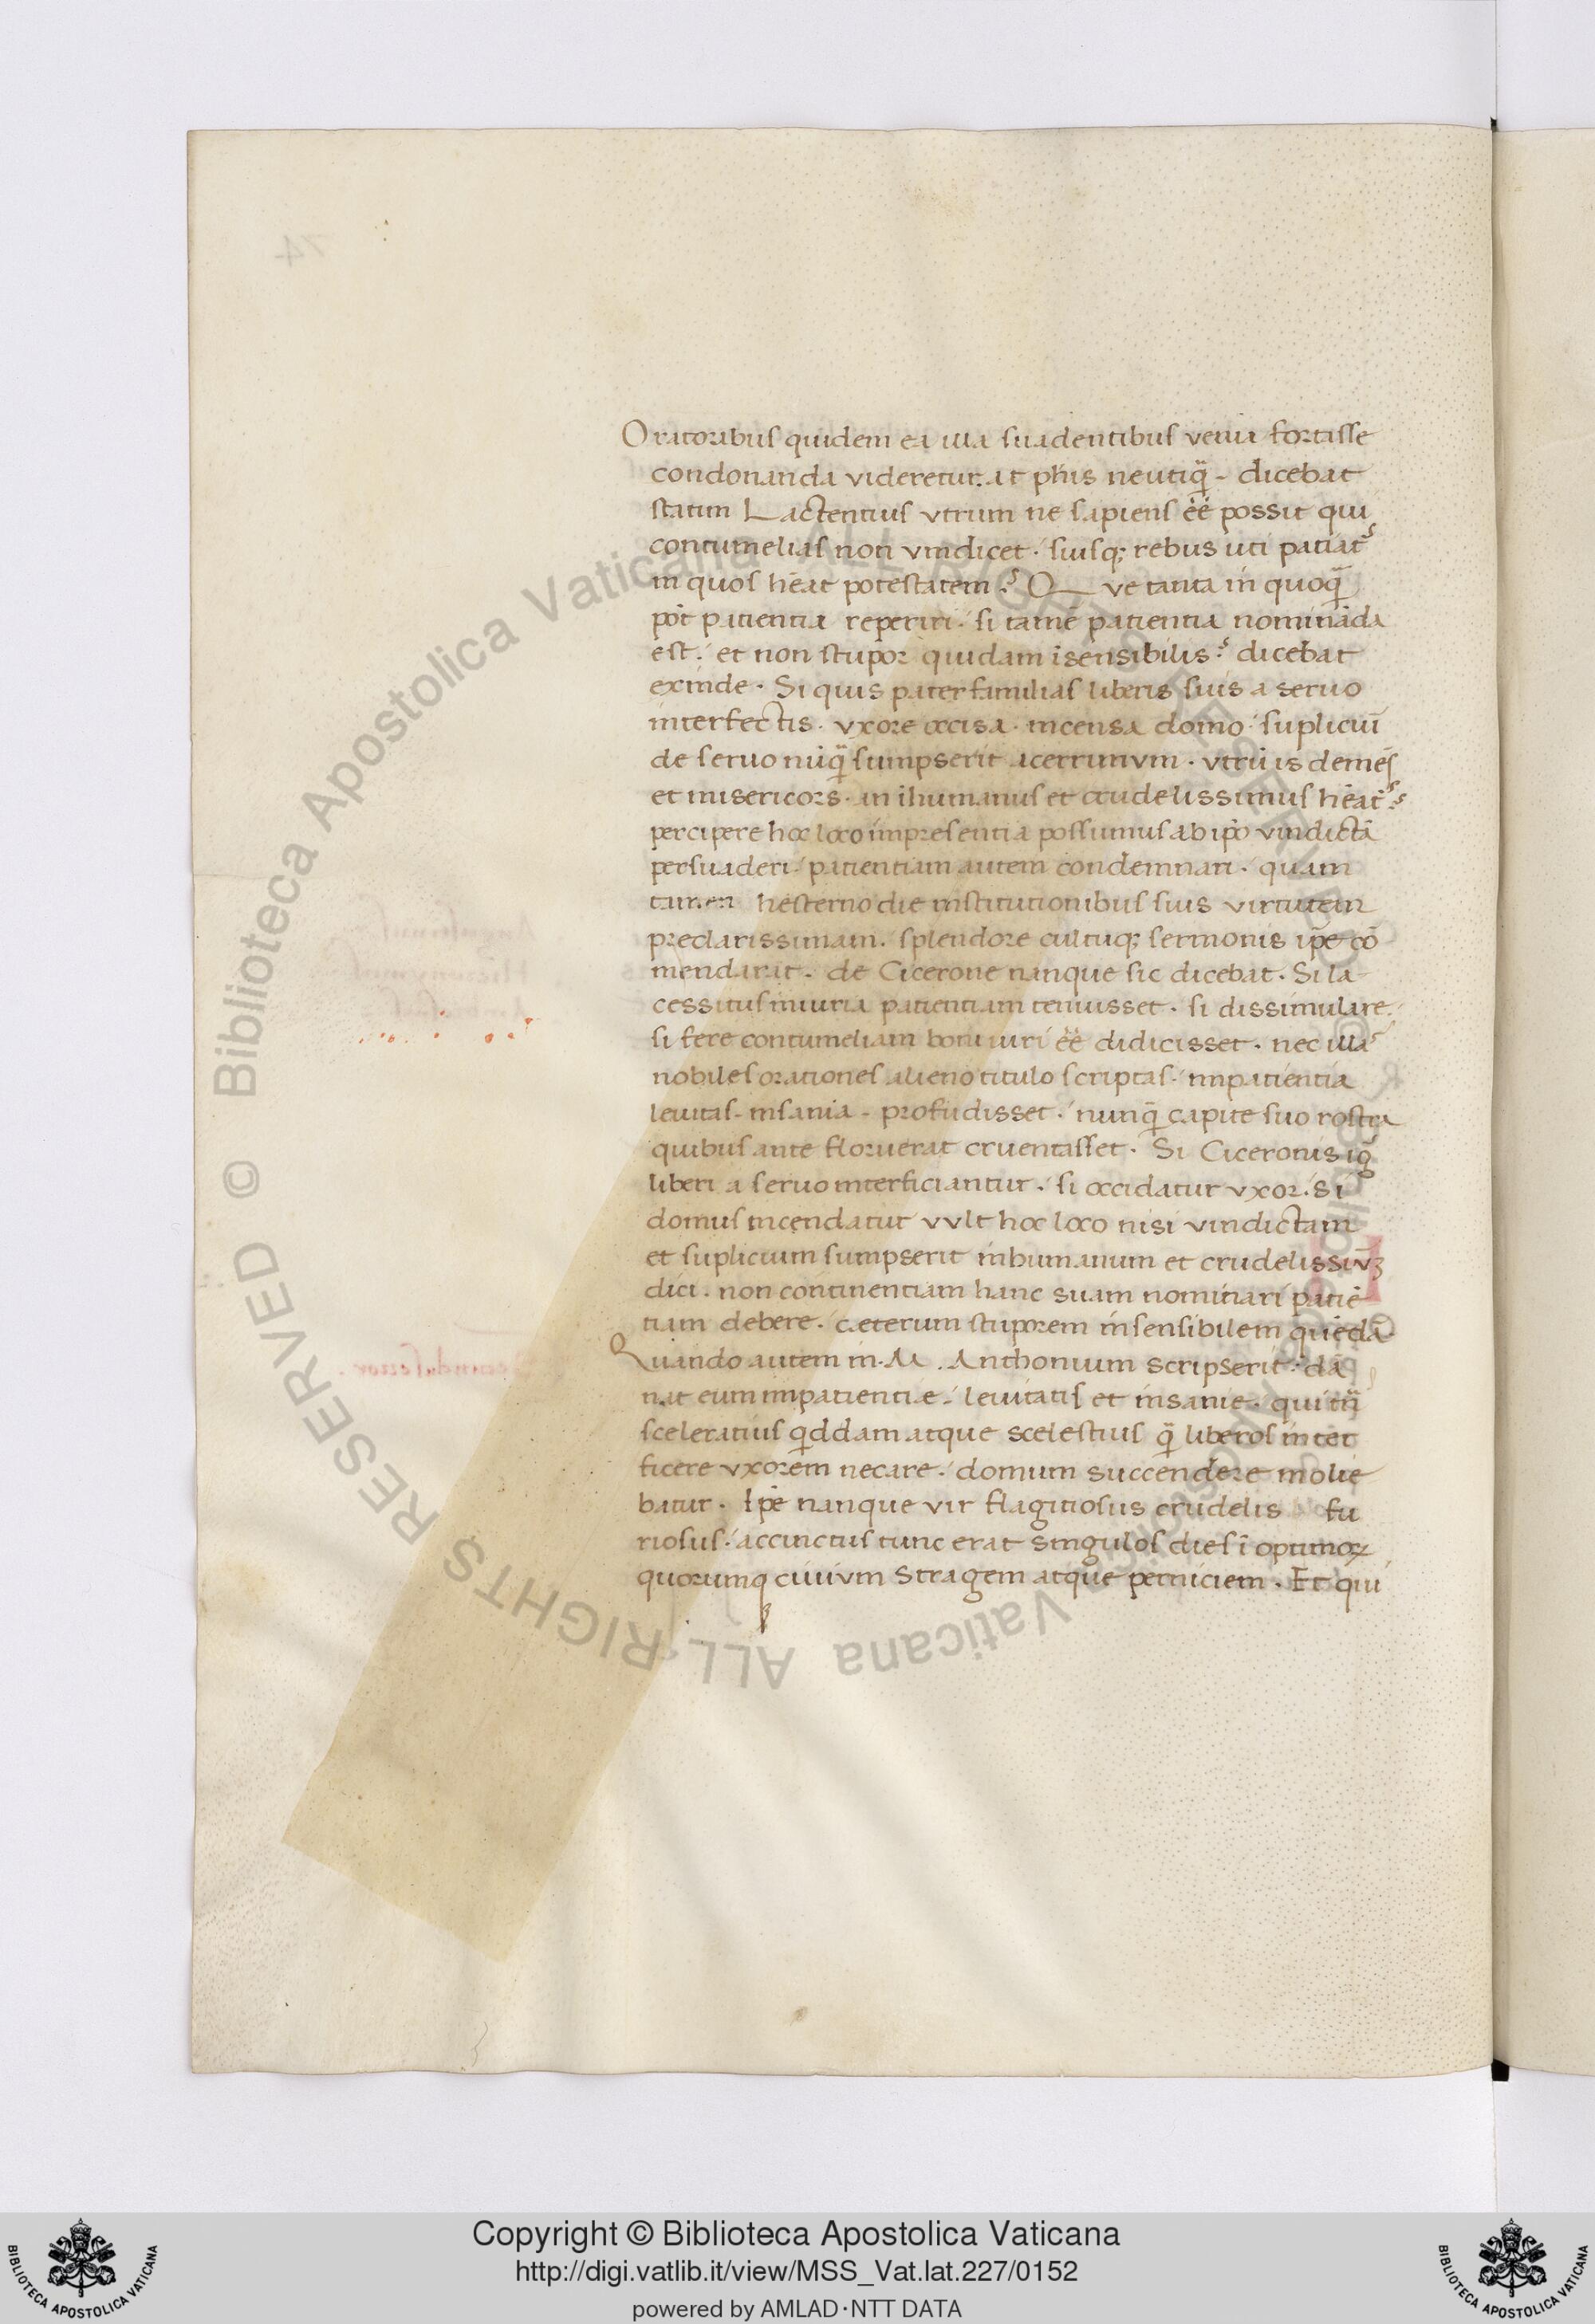 Oratoribus quidem ea illa suadentibus venia fortisse
condonanda videretur. at phis neutiq̃ - dicebat
statim Lactentius vtrum ne sapiens ẽẽ possit qui
contumelias non vindicet · suisq; rebus uti patiat᷑
in quos hẽat potestatem? Que tanta in quoq̃
pot̃ patientia reperiri · si tamẽ patientia nominãda
est · et non stupor quidam ĩsensibilis? dicebat
exinde · Si quis pater familias liberis suis a seruo
interfectis · vxore occisa · incensa domo · supliciũ
de seruo nũq̃ sumpserit acerrimvm · vtrũ is demẽs
et misericors · an ihumanus et crudelissimus hẽat᷑?
percipere hoc loco impresentia possumus ab ip̃o vindictã
persuaderi · patientiam autem condemnari · quam
tamen hesterno die institutionibus suis virtutem
preclarissimam · splendore cultuq; sermonis ip̃e cõ
mendarat · de Cicerone nanque sic dicebat · Si la-
cessitus iniuria patientiam tenuisset · si dissimulare
si fere contumeliam boni uiri ẽẽ didicisset · nec illas
nobiles orationes alieno titulo scriptas · impatientia
leuitas - insania - profudisset · nunq̃ capite suo rostra
quibus ante floruerat cruentasset · Si Ciceronis ig̃
liberi a seruo interficiantur · si occidatur vxor · si
domus incendatur vvlt hoc loco nisi vindictam
et suplicium sumpserit inhumanum et crudelissiũʒ
dici · non continentiam hanc suam nominari patiẽ
tiam debere · cæterum stuporem insensibilem quẽdã·
Quando autem in · M · Anthonium scripserit · dã
nat eum impatientiæ · leuitatis et insanie · qui tñ
sceleratius qddam atque scelestius q̃ liberos inter
ficere vxorem necare · domum succendere molie
batur · Ip̃e nanque vir flagitiosus crudelis fu
riosus · accinctus tunc erat singulos dies ĩ optimoꝝ
quorumq civivm stragem atque perniciem · Et qui
Copyright © Biblioteca Apostolica Vaticana
http://digi.vatlib.it/view/MSS_Vat.lat.227/0152
powered by AMLAD·NTT DATA